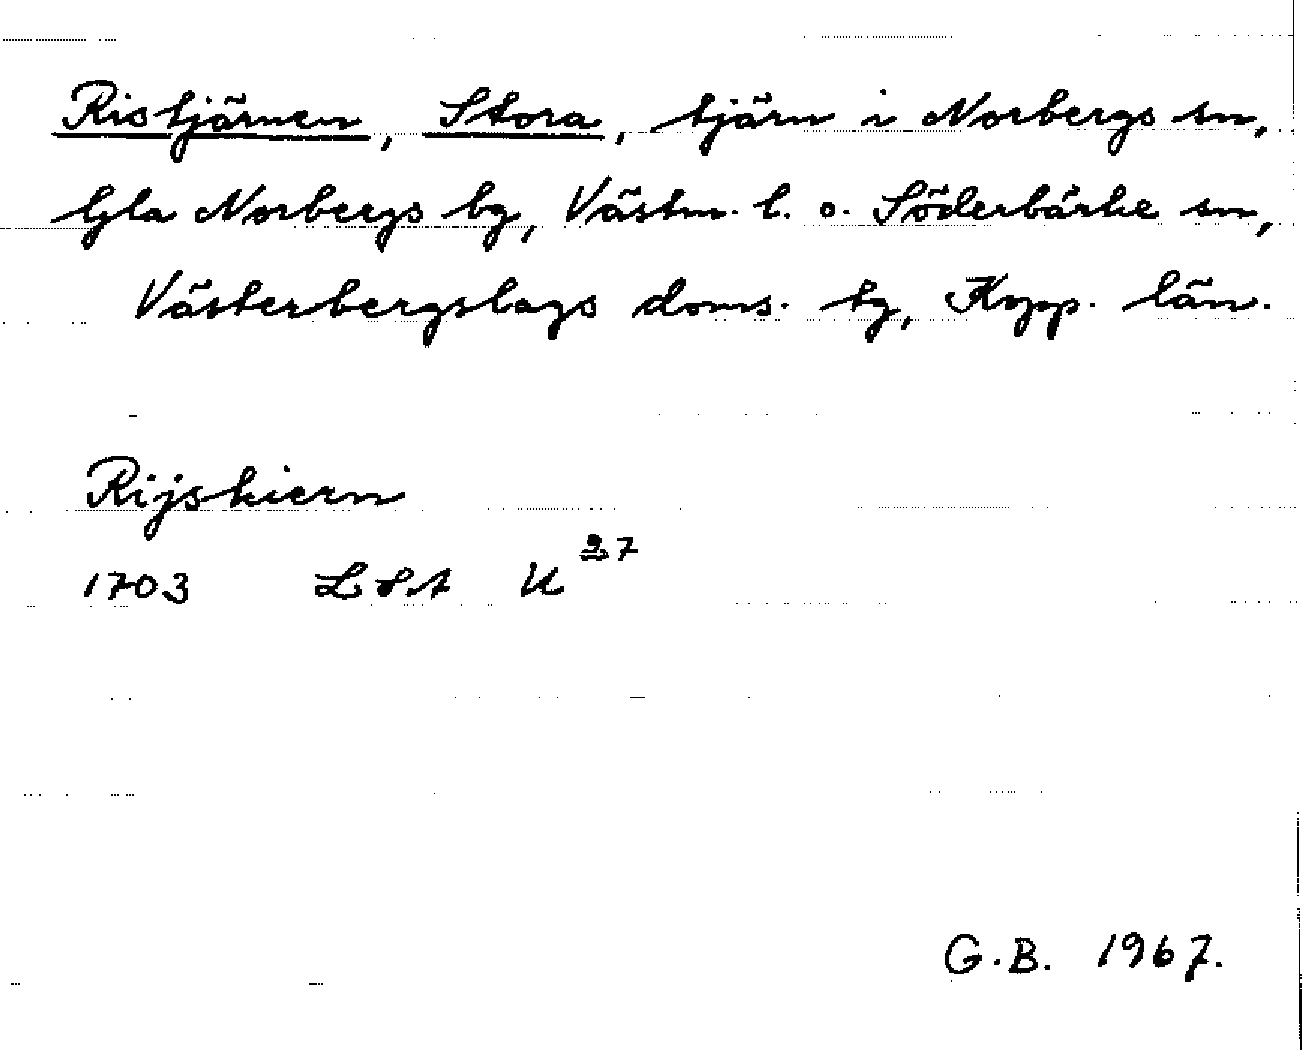 Ristjärnen, Stora, tjärn i Norbergs sn,
Gla Norbergs bg, Västm. l. o. Söderbärke sn,
Västerbergslags doms. tg, Kopp. län.
Rijskiern
1703 LSA U 27
G.B. 1967.